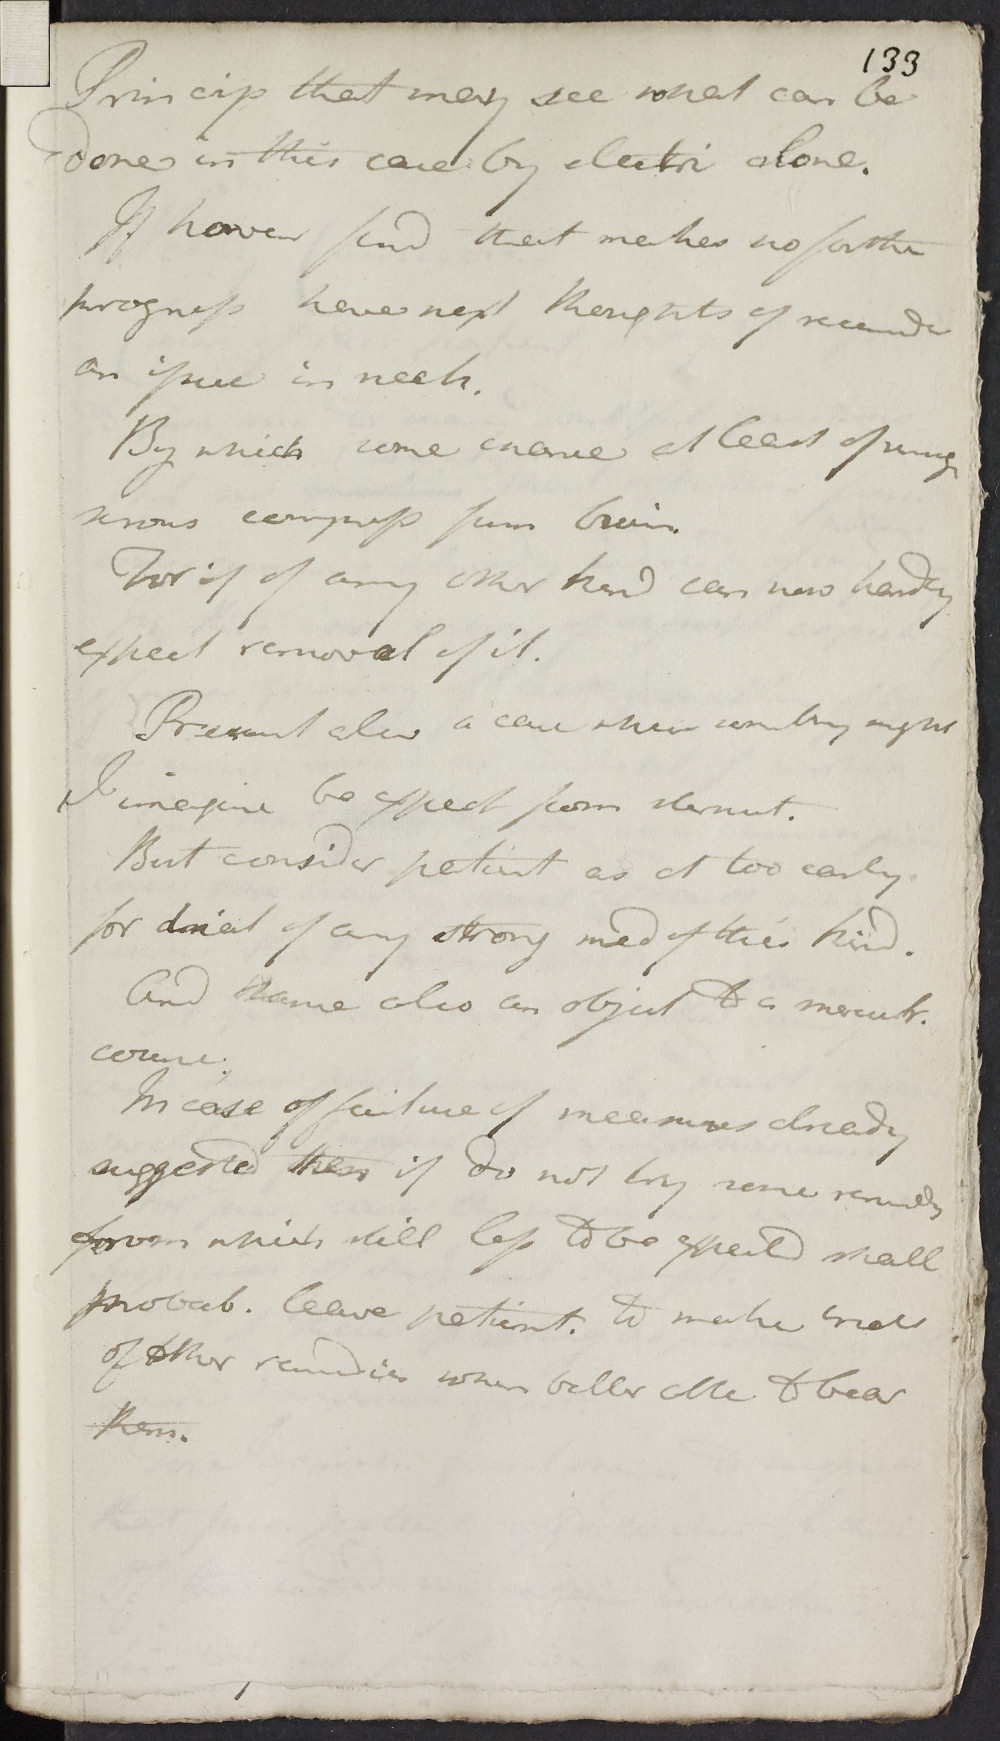 133
Princip that may see what can be
done in this case by electri alone.
If however find that makes no farther
progress have next thoughts of recommdg
an issue in neck.
By which some chance at least of remvg
serous compress from brain.
For if of any other kind can now hardly
expect removal of it.
Present also a case where somthng might
I imagine be expect from sternut.
But consider patient as at too early
for trial of any strong med of this kind.
And same also an object to a mercur.
course.
In case of failure of measures already
suggested then if do not try some remedy
from which still less to be expected shall
probab. leave patient. to make trial
of other remedies when better able to bear
them.